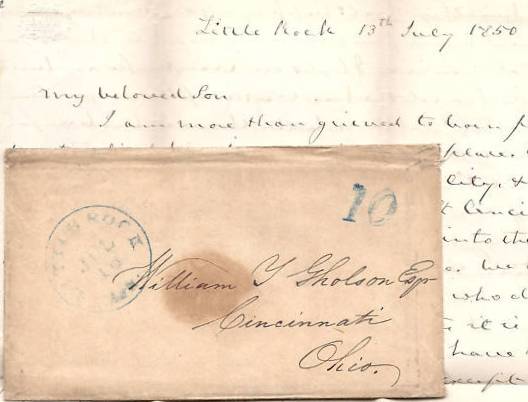 Little Rock 13th July 1850
My beloved Son
I am more than grieved to learn
place.
city, &
into the
we
who
it is
have
except
10
LITTLE ROCK
JUL
Ark
William Y Gholson Esqr
Cincinnati
Ohio.